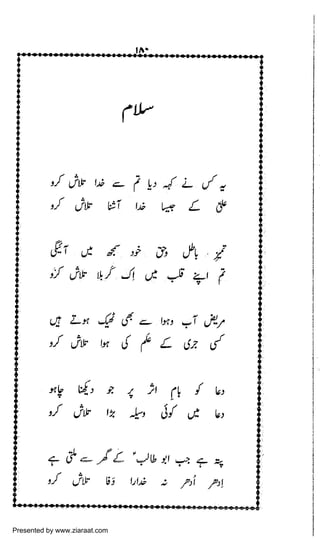 ۱۸۰
سلام
یہ کس نے کہہ دیا تم سے خدا تلاش کرو
علیؑ کے جیسا خدا آشنا تلاش کرو
تمیزِ باطل و حق خود سمجھ میں آئیگی
تم اپنے قلب میں اِک کربلا تلاش کرو
مریض آب و ہوا سے بھی ٹھیک ہوتے ہیں
کسی جری کے علم کی ہوا تلاش کرو
دعا کو بامِ اثر پر جو دیکھنا چاہو
دعا میں کوئی وسیلہ بڑا تلاش کرو
پتہ ہے جب ابو طالبؑ کے گھر سے ملتی ہے
اِدھر اُدھر نہ خدارا وَفا تلاش کرو
Presented by www.ziaraat.com